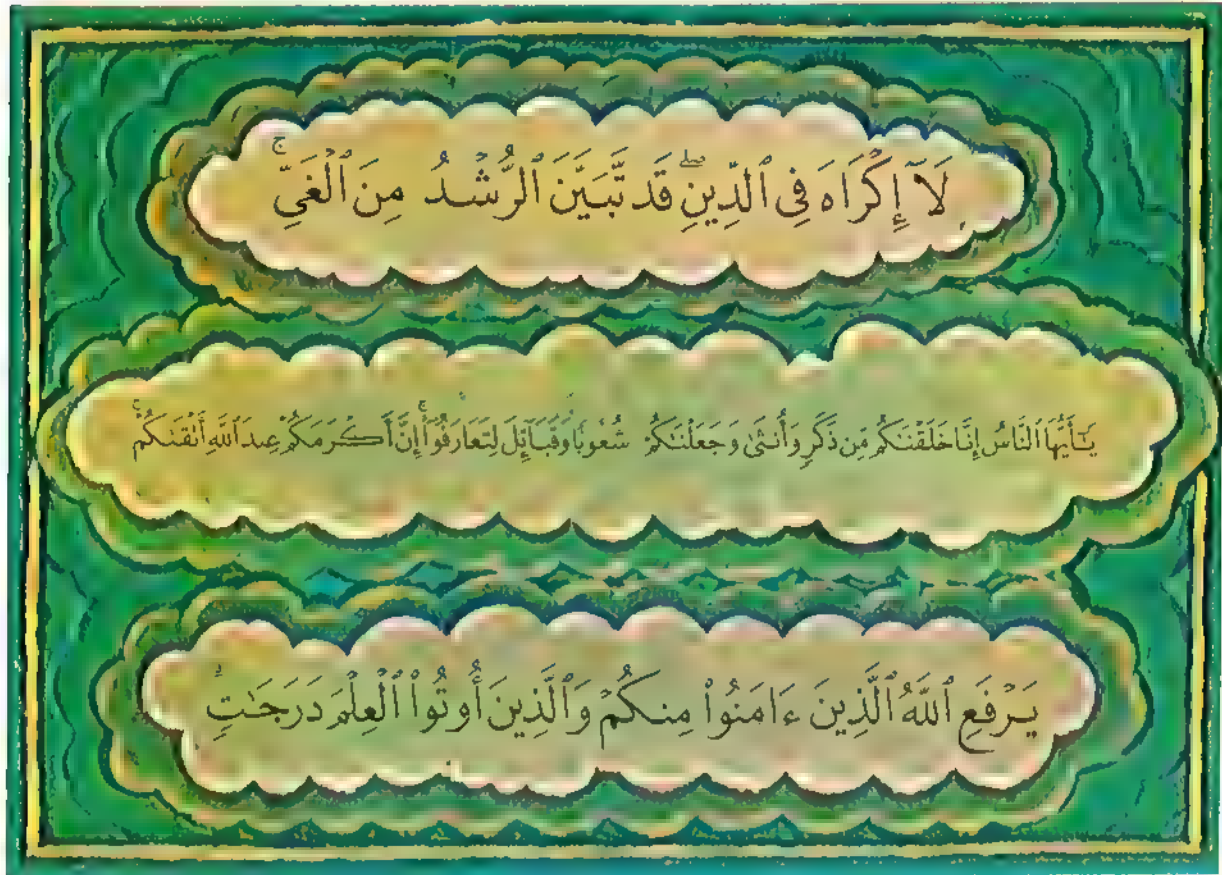 لَآ إِكْرَاهَ فِى ٱلدِّينِۖ قَد تَّبَيَّنَ ٱلرُّشْدُ مِنَ ٱلْغَىِّۚ
يَـٰٓأَيُّهَا ٱلنَّاسُ إِنَّا خَلَقْنَـٰكُم مِّن ذَكَرٍ وَأُنثَىٰ وَجَعَلْنَـٰكُمْ شُعُوبًا وَقَبَآئِلَ لِتَعَارَفُوٓا۟ۚ إِنَّ أَكْرَمَكُمْ عِندَ ٱللَّهِ أَتْقَىٰكُمْۚ
يَرْفَعِ ٱللَّهُ ٱلَّذِينَ ءَامَنُوا۟ مِنكُمْ وَٱلَّذِينَ أُوتُوا۟ ٱلْعِلْمَ دَرَجَـٰتٍۚ